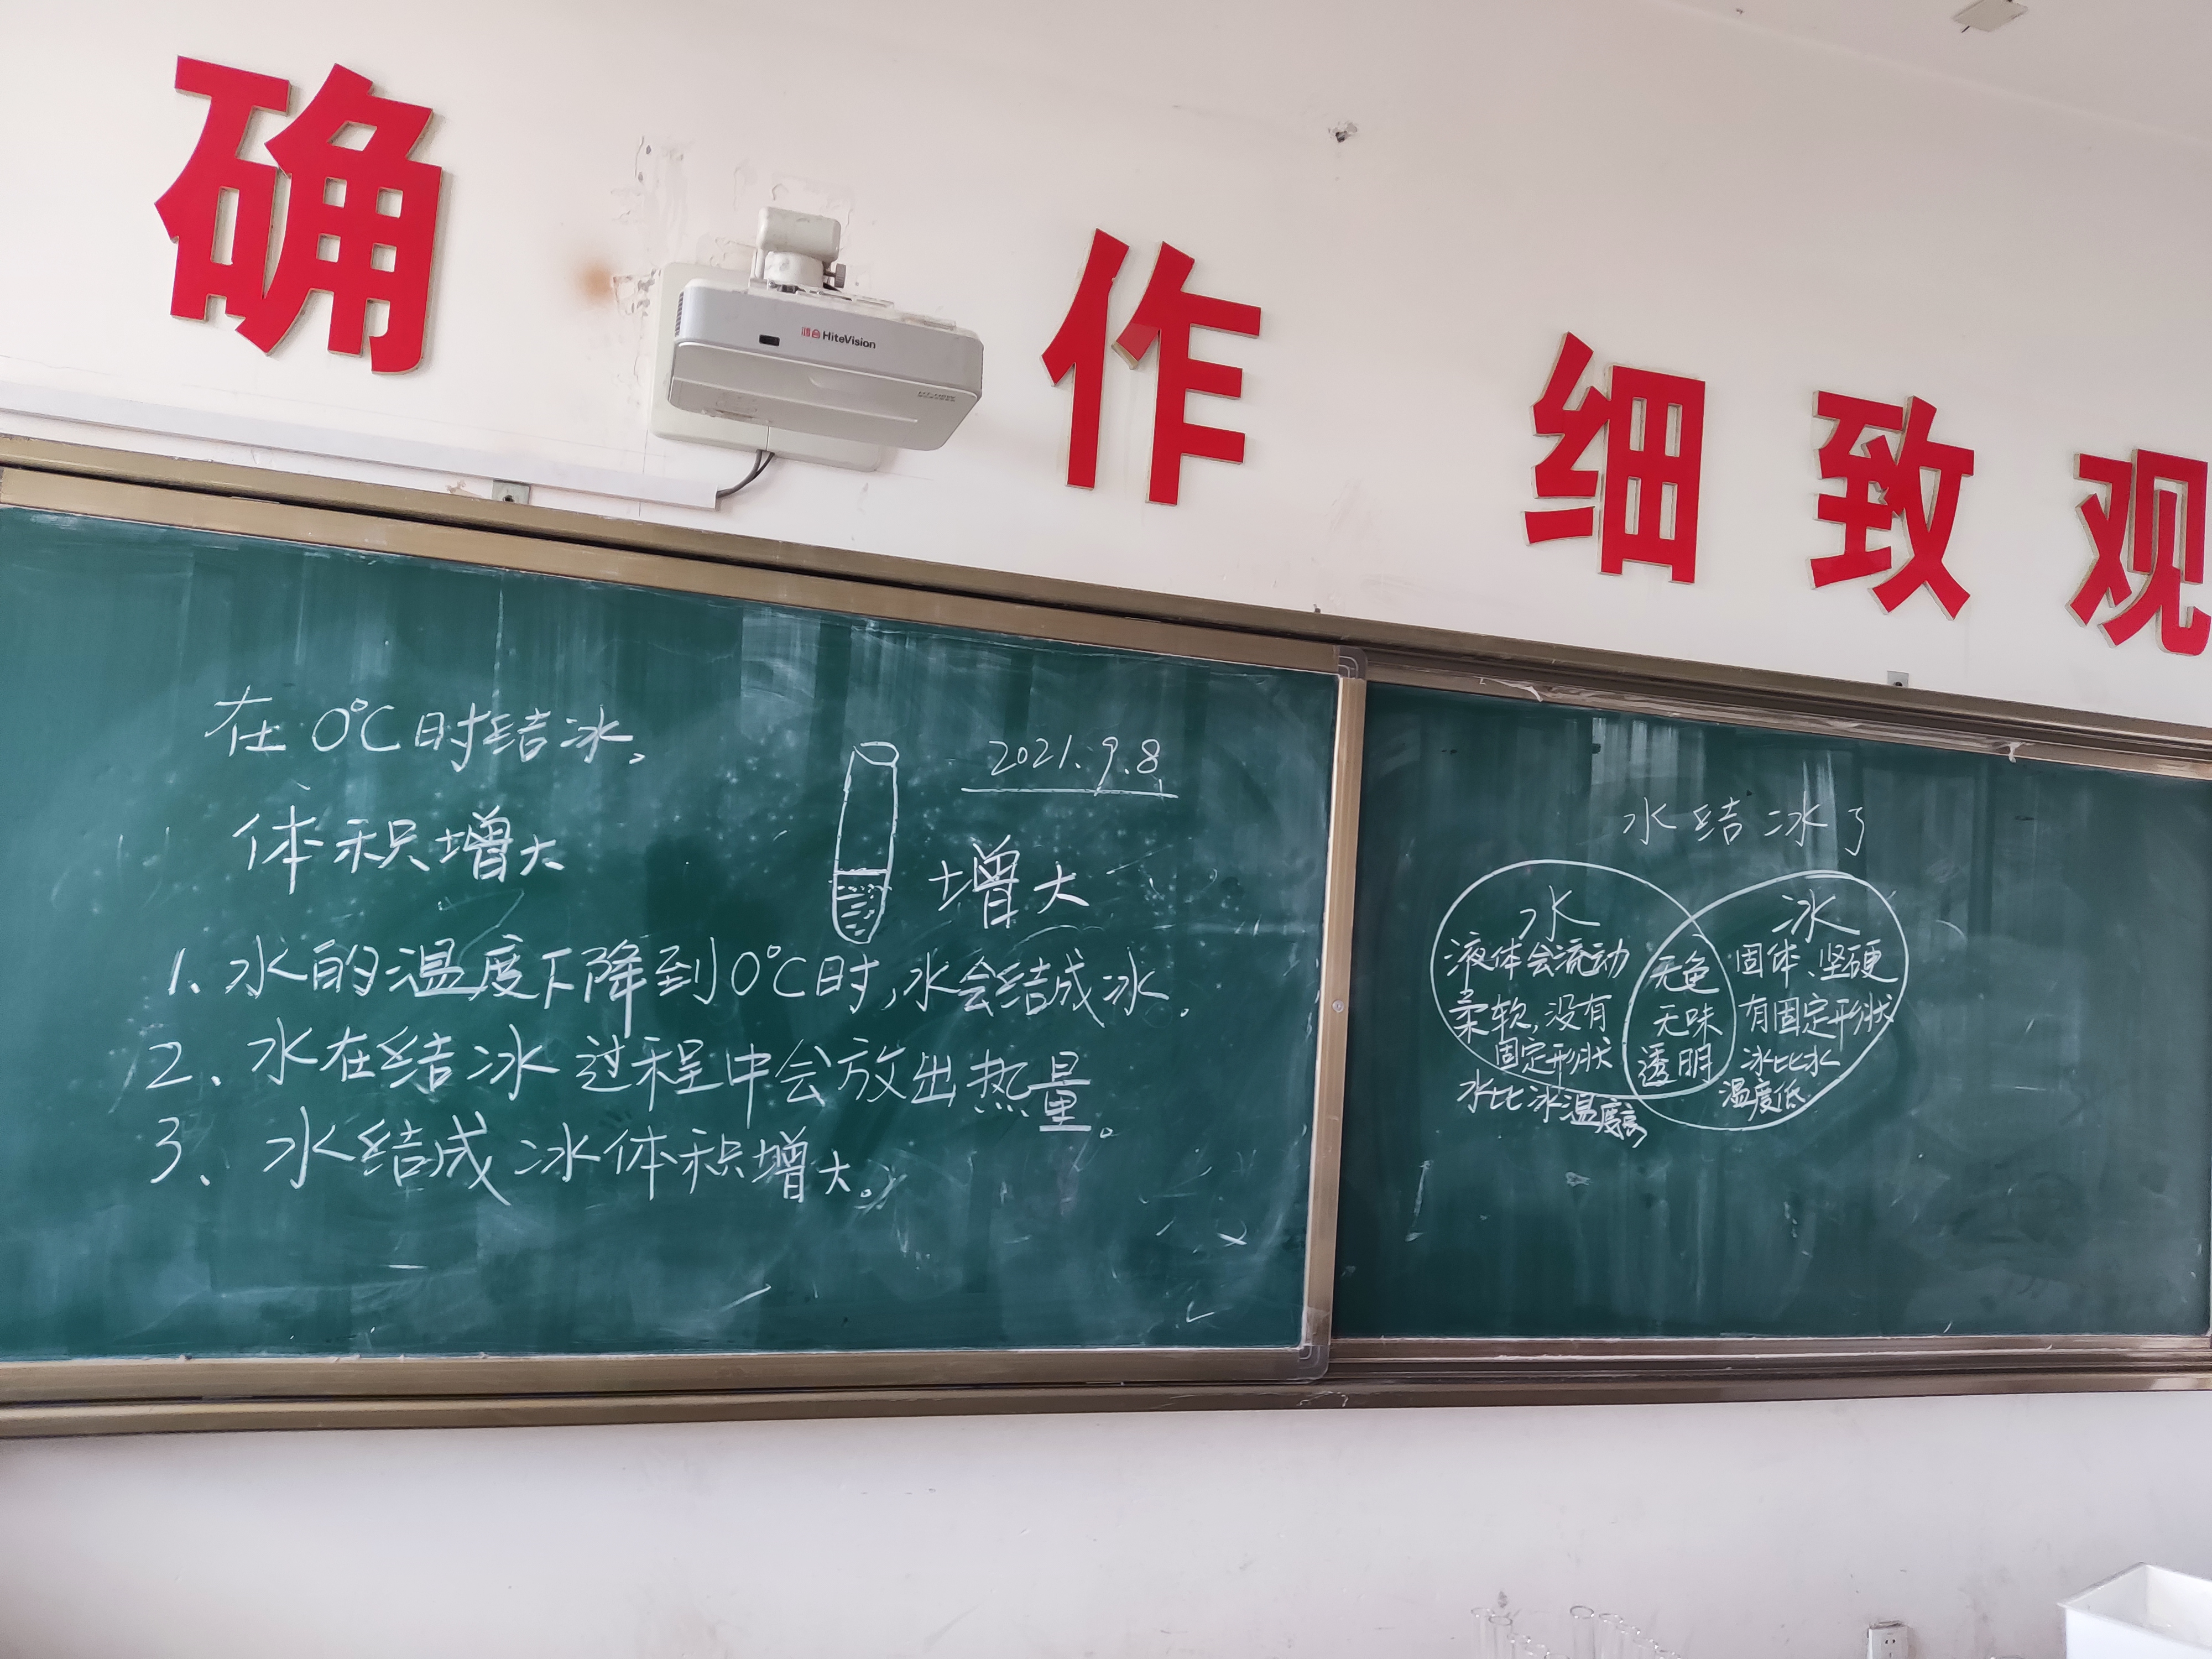 确 作 细 致 观
鸿合 HiteVision
在0℃时结冰。
2021.9.8
体积增大
增大
1、水的温度下降到0℃时,水会结成冰.
2、水在结冰过程中会放出热量。
3、水结成冰体积增大。
水结冰了
水
液体会流动
柔软,没有
固定形状
水比冰温度高
无色
无味
透明
冰
固体、坚硬
有固定形状
冰比水
温度低.